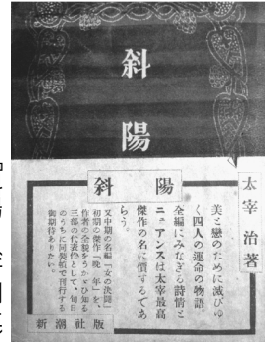 斜
陽
斜陽
太宰治著
美と戀のために滅びゆ
く四人の運命の物語
全編にみなぎる詩情と
ニュアンスは太宰最高
傑作の名に價するであ
らう。
又中期の名編「女の決闘」
初期の傑作「晩年」を、
作者の全貌をうかゞひ知る
三部の代表作として、旬日
のうちに同装幀で刊行する
御期待ありたい。
新潮社版